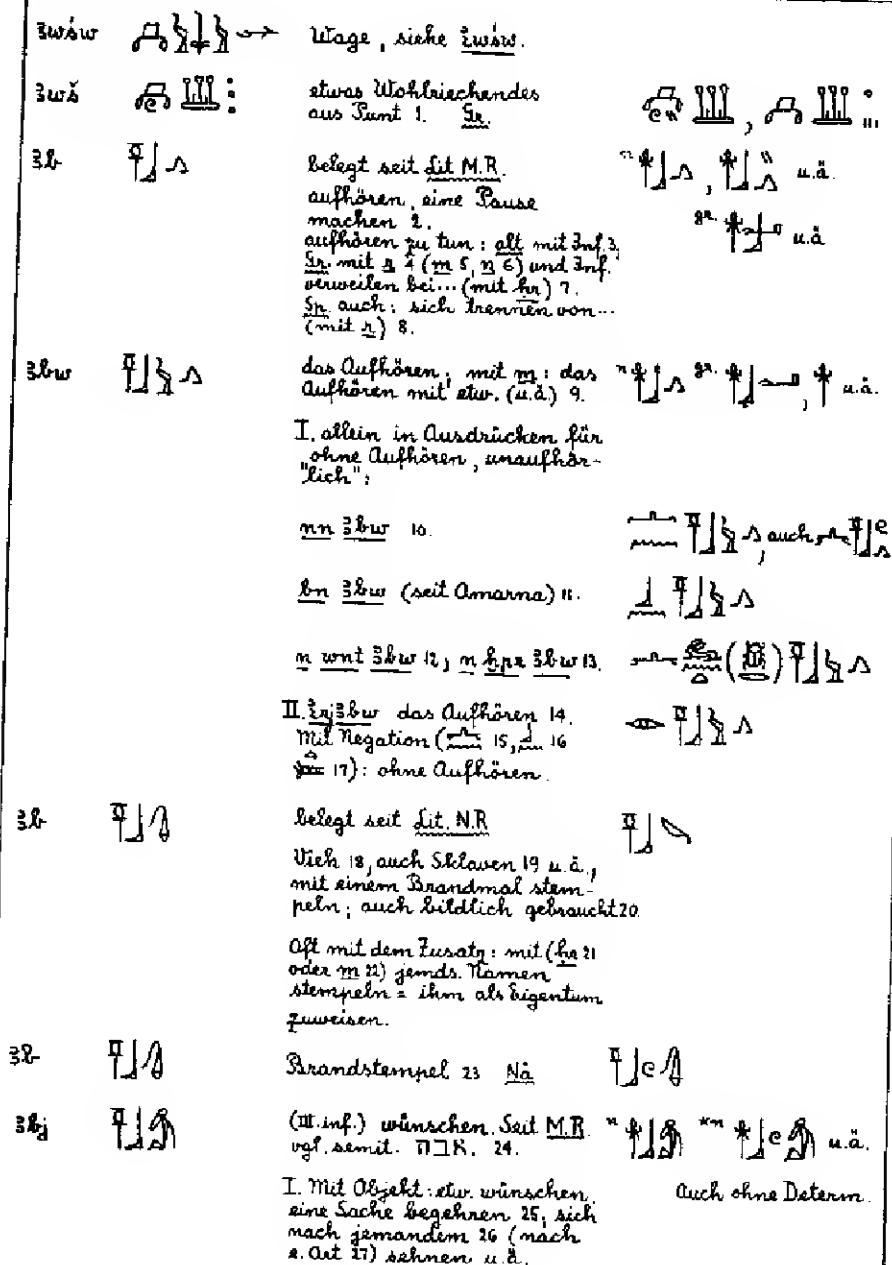 ꜣwśw Wage, siehe ı͗wśw.
ꜣwš etwas Wohlriechendes
aus Punt 1. Gr.
ꜣb belegt seit Lit M.R. u.ä.
aufhören, eine Pause
machen 2. gr. u.ä
aufhören zu tun: alt mit Inf. 3,
Gr. mit r 4 (m 5, n 6) und Inf.
verweilen bei... (mit ḥr) 7.
Sp. auch: sich trennen von...
(mit r) 8.
ꜣbw das Aufhören; mit m: das n gr. u.ä.
Aufhören mit etw. (u.ä.) 9.
I. allein in Ausdrücken für
"ohne Aufhören, unaufhör-
lich":
nn ꜣbw 10. , auch
bn ꜣbw (seit Amarna) 11.
n wnt ꜣbw 12, n ḫpr ꜣbw 13. ( )
II. ı͗rj ꜣbw das Aufhören 14.
Mit Negation ( 15, 16
17): ohne Aufhören.
ꜣb belegt seit Lit. N.R
Vieh 18, auch Sklaven 19 u.ä.,
mit einem Brandmal stem-
peln; auch bildlich gebraucht 20.
Oft mit dem Zusatz: mit (ḥr 21
oder m 22) jemds. Namen
stempeln = ihm als Eigentum
zuweisen.
ꜣb Brandstempel 23 Nä
ꜣbj (III. inf.) wünschen. Seit M.R. n u.ä.
vgl. semit. אבה. 24.
I. Mit Objekt: etw. wünschen, Auch ohne Determ.
eine Sache begehren 25, sich
nach jemandem 26 (nach
e. Ort 27) sehnen u.ä.